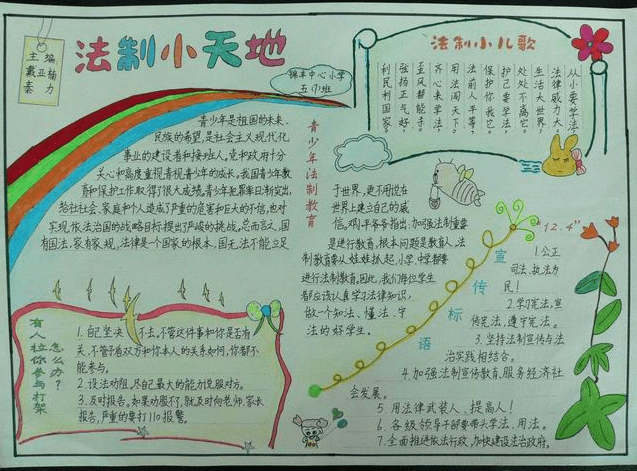 法制小天地
主编
戴亚楠
秦力
锦丰中心小学
五(1)班
法制小儿歌
从小要学法，
法律威力大。
生活大世界，
处处不离它。
护己要学法，
保护你我它。
法前人平等，
用法闯天下。
齐心来学法，
歪风都能手。
强扬正气好，
利民利国家。
青少年法制教育
青少年是祖国的未来，
民族的希望，是社会主义现代化
事业的建设者和接班人，党和政府十分
关心和高度重视青少年的成长，我国青少年教
育和保护工作取得了很大成绩。青少年犯罪率日渐突出，
给社社会、家庭和个人造成了严重的危害和巨大的不信，也对
实现依法治国的战略目标提出了严峻的挑战。总而言之，国
有国法，家有家规，法律是一个国家的根本，国无法不能立足
于世界，更不用说在
世界上建立自己的威
信。邓小平爷爷指出：加强法制重要
是进行教育，根本问题是教育人。法
制教育要从娃娃抓起，小学、中学都要
进行法制教育。因此，我们每位学生
都应该认真学习法律知识，
做一个知法、懂法、守
法的好学生。
有人拉你参与打架
怎么办？
1.自己坚决不去，不管这件事和你是否有
关，不管争者双方和你本人的关系如何，你都不
能参与。
2.设法劝阻，尽自己最大的能力说服对方。
3.及时报告。如果劝服不了，就及时向老师、家长
报告，严重的要打110报警。
宣传标语
"12.4"
1.公正
司法、执法为
民！
2.学习宪法，宣
传宪法，遵守宪法。
3.坚持法制宣传与法
治实践相结合。
4.加强法制宣传教育，服务经济社
会发展。
5.用法律武装人、提高人！
6.各级领导干部要带头学法、用法。
7.全面推进依法行政，加快建设法治政府。